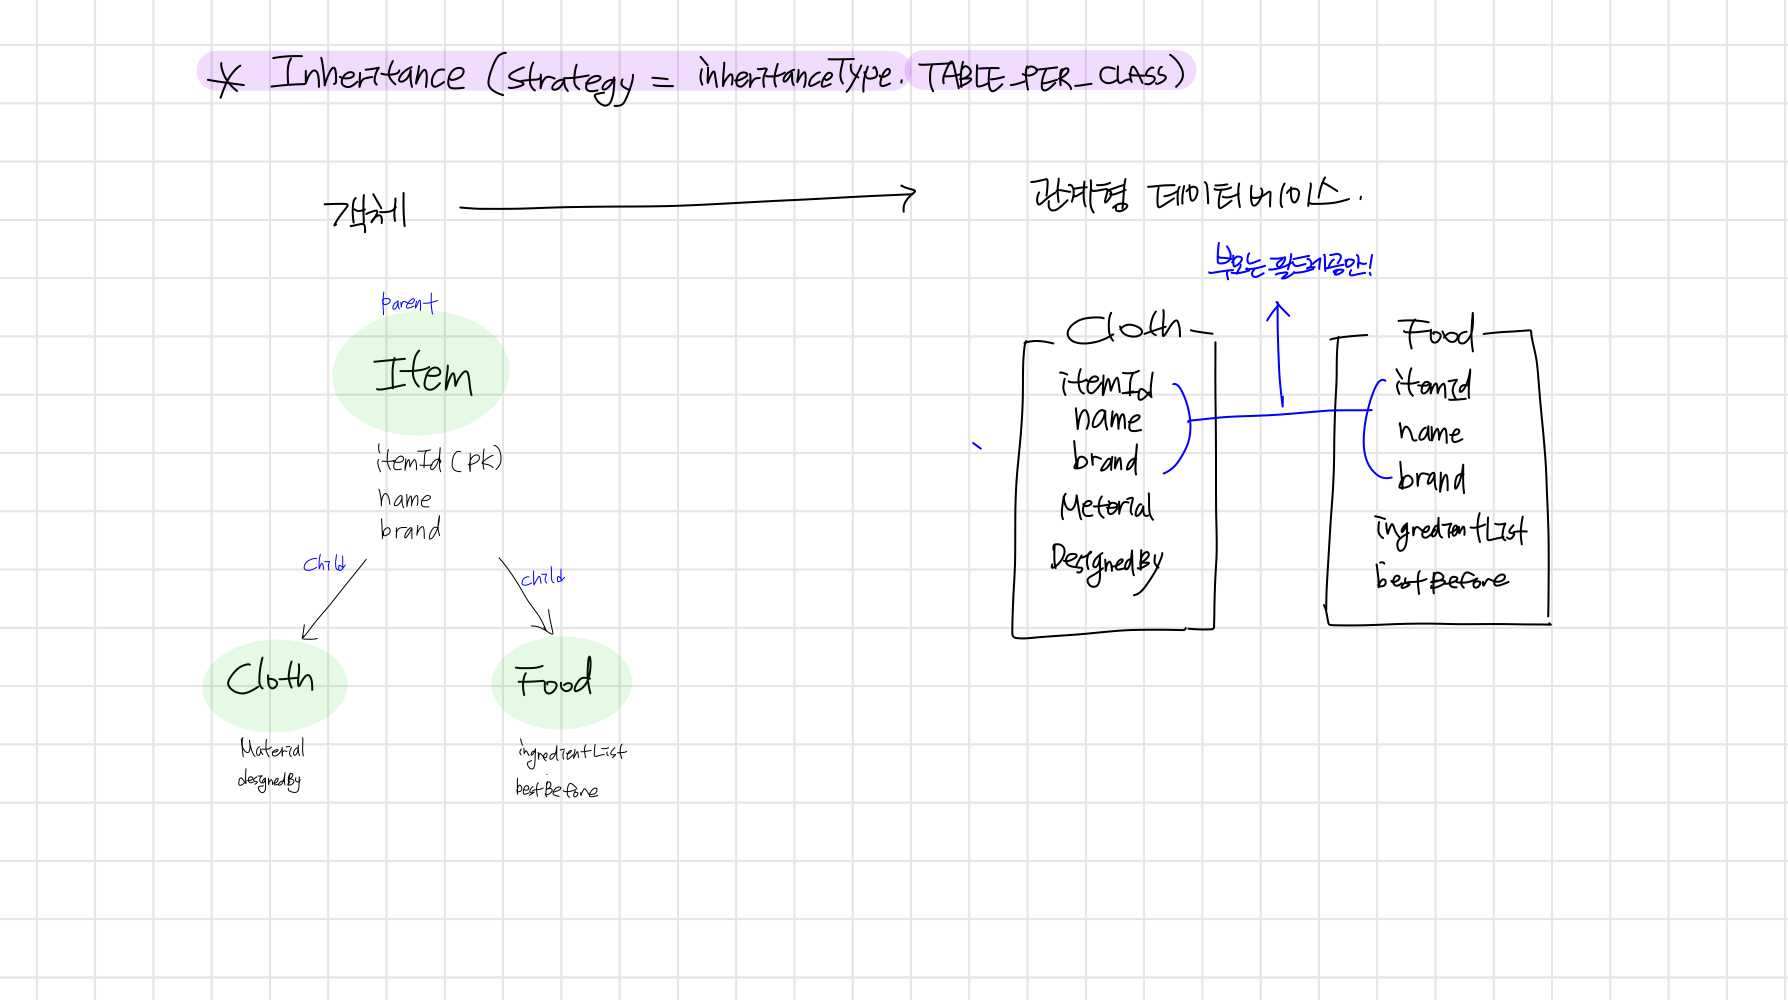 * Inheritance (strategy = inheritanceType. TABLE_PER_CLASS)
객체
관계형 데이터베이스.
parent
Item
itemId (PK)
name
brand
child
child
Cloth
Material
designedBy
Food
ingredientList
bestBefore
부모는 필드제공만!
Cloth
itemId
name
brand
Meterial
DesignedBy
Food
itemId
name
brand
ingredientList
bestBefore